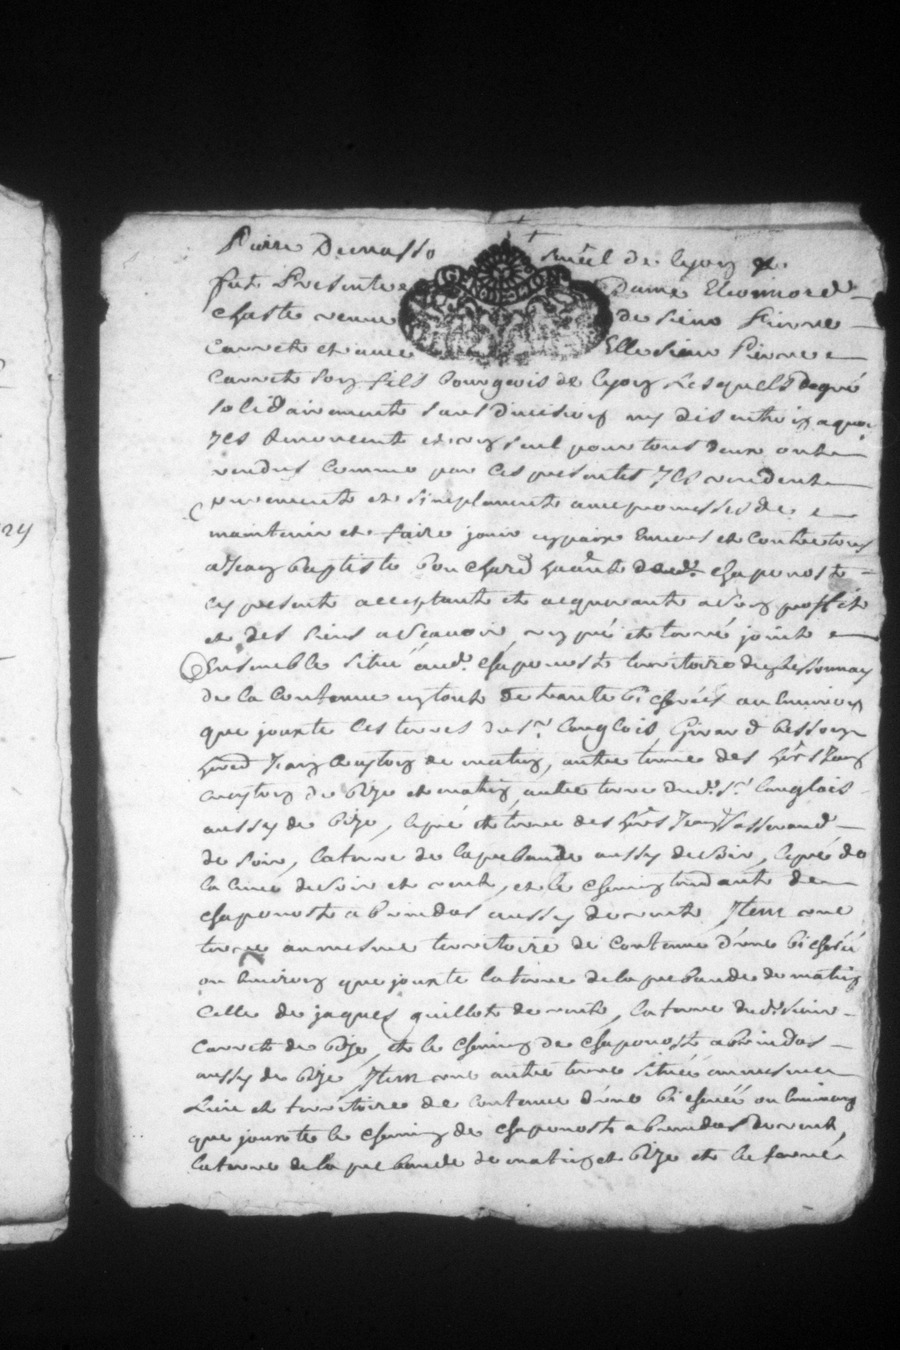 fut Presente Dame Eleonnord
Chaste veuve de sieur Pierre
Carret et avec Elle sieur Pierre
Carret son fils bourgeois de lyon Lesquels de gré
solidairement sans division ny discution a quoy
Ils Renoncent et un seul pour tous deux ont
vendus comme par ces presentes Ils vendent
purement et simplement avec promesse de
maintenir et faire jouir en paix Envers et Contre tous
a Jean baptiste bouchard habt. dud. chaponost
cy present acceptant et acquerant a son proffit
et des siens a Scavoir un pré et terre joint
Ensemble situé aud. chaponost territoire du
de la Contenue en tout de trante bicherées ou Environ
que jouxte les terres du sr. Langlois Girard besson
de matin, autre terre des hers Jean
de bize et matin, autre terre dud. sr. Langlois
aussy de bize, le pré et terre des hers Jean
de soir, la terre de la prebande aussy de soir, le pré de
la Cure de soir et vent, et le chemin tendant de
chaponost a brindas aussy de vent Item une
terre au mesme territoire de Contenue d'une bicherée
ou Environ que jouxte la terre de la prebande de matin
Celle de jaques guillot de vent, la terre dud. sieur
Carret de bize, et le chemin de chaponost a brindas
aussy de bize Item une autre terre située au mesme
Lieu et territoire de Contenue d'une bicherée ou Environ
que jouxte le chemin de chaponost a brindas de vent,
la terre de la prebande de matin et bize et le